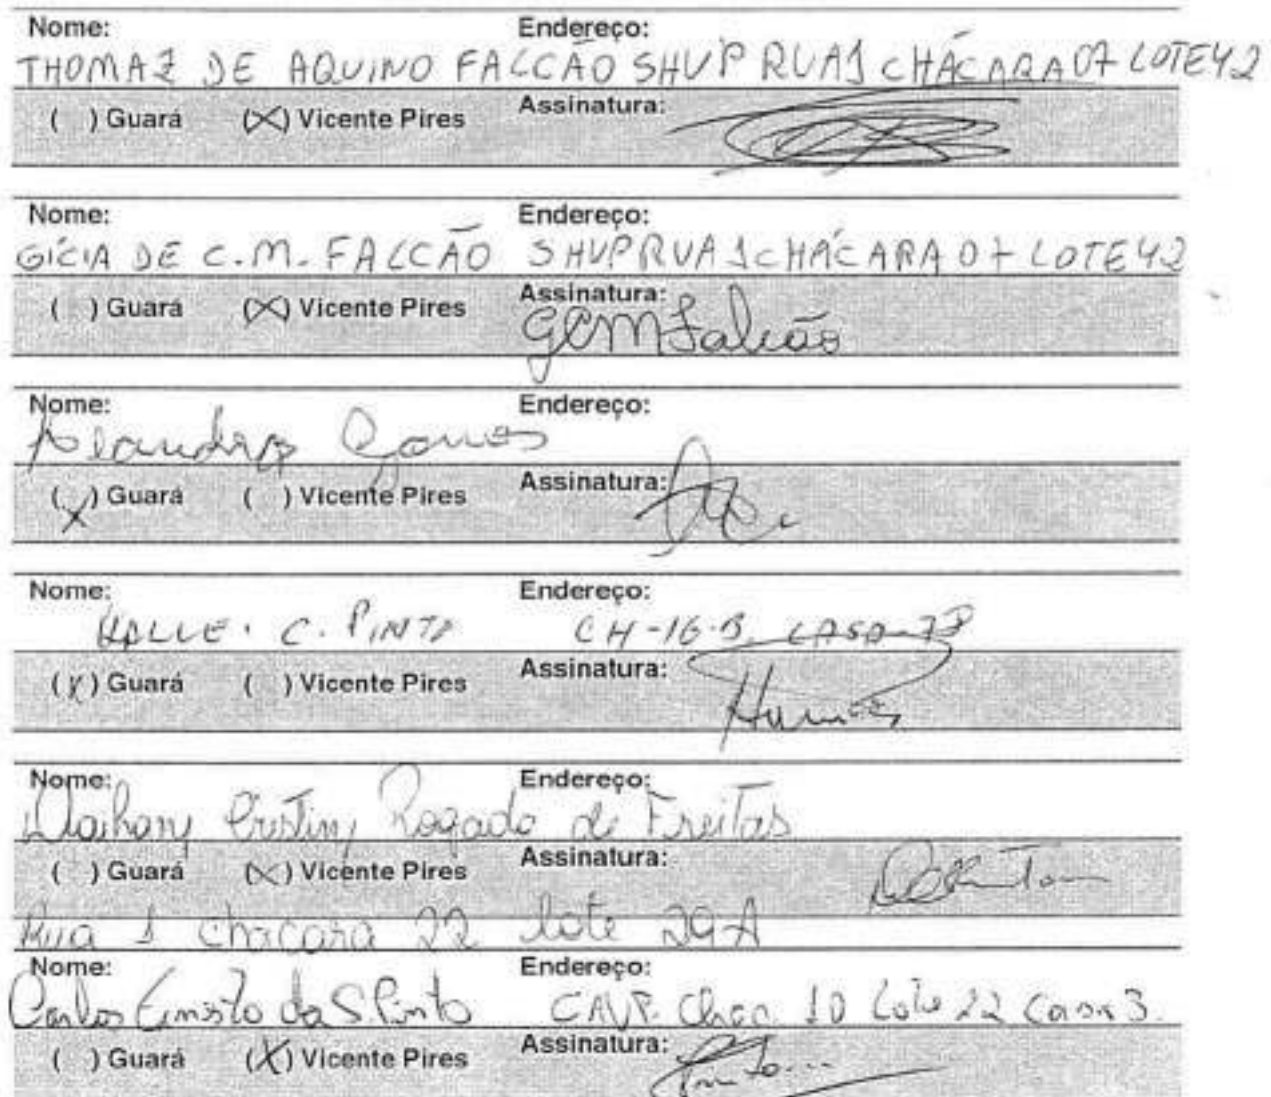 Nome: Endereço:
THOMAZ DE AQUINO FALCÃO SHVP RUA 1 CHÁCARA 07 LOTE 42
( ) Guará (X) Vicente Pires Assinatura:
Nome: Endereço:
GÍCIA DE C.M. FALCÃO SHVP RUA 1 CHÁCARA 07 LOTE 42
( ) Guará (X) Vicente Pires Assinatura:
GCMFalcão
Nome: Endereço:
(X) Guará ( ) Vicente Pires Assinatura:
Nome: Endereço:
C. PINTO CH-16-B CASA
(X) Guará ( ) Vicente Pires Assinatura:
Nome: Endereço:
Rogado de Freitas
( ) Guará (X) Vicente Pires Assinatura:
Rua 1 chacara 22 lote 29A
Nome: Endereço:
Carlos da S. Pinto Chac. 10 Lote 22 Casa 3.
( ) Guará (X) Vicente Pires Assinatura: